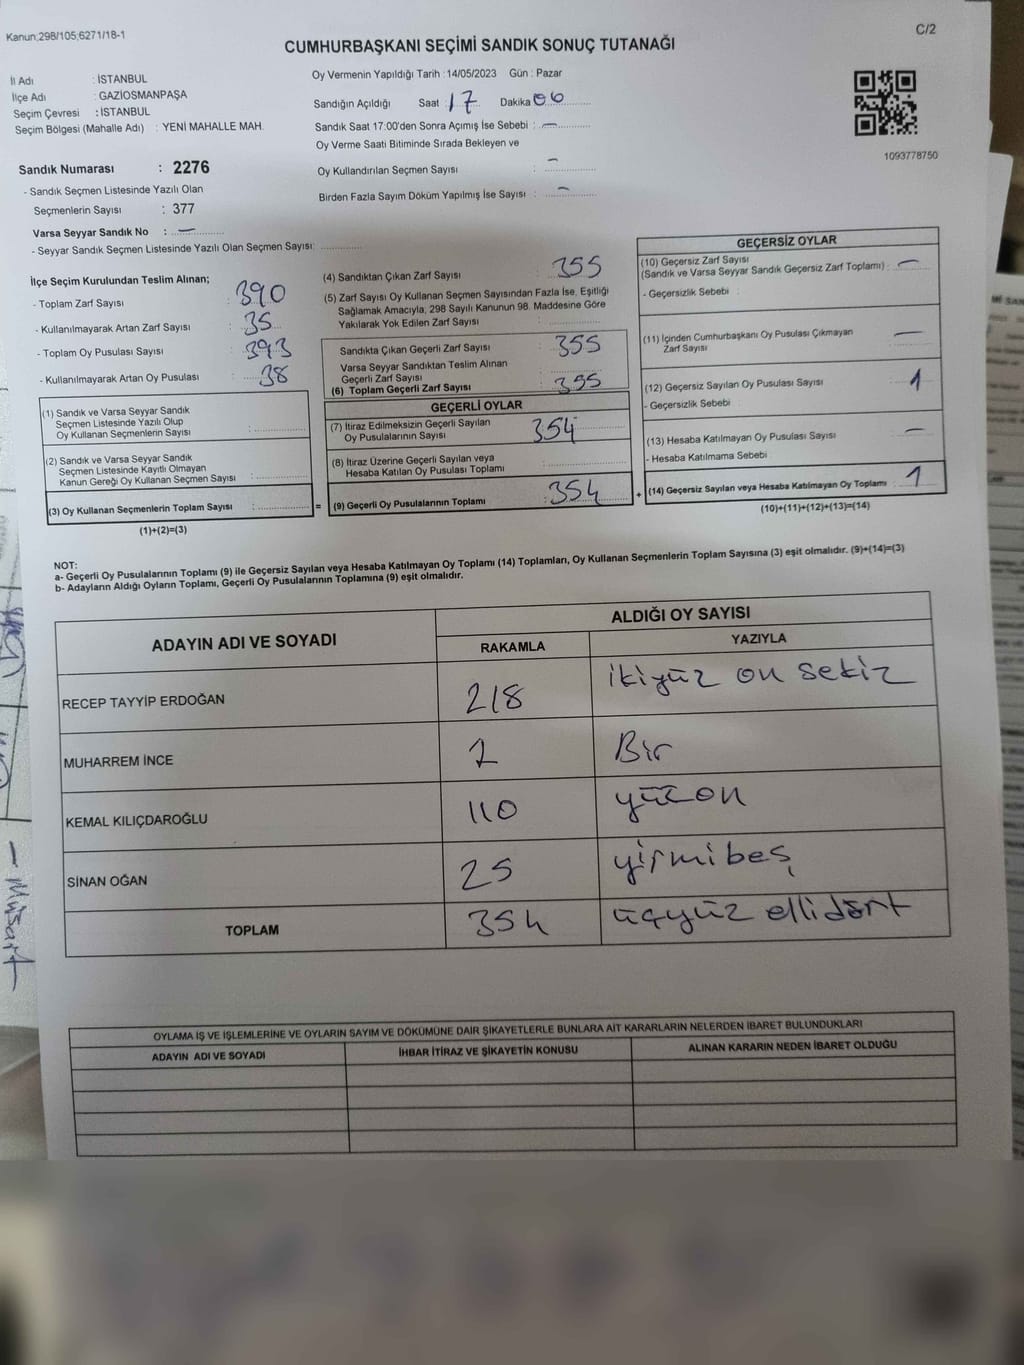 Kanun;298/105;6271/18-1
C/2
CUMHURBAŞKANI SEÇİMİ SANDIK SONUÇ TUTANAĞI
İl Adı : İSTANBUL
İlçe Adı : GAZİOSMANPAŞA
Seçim Çevresi : İSTANBUL
Seçim Bölgesi (Mahalle Adı) : YENİ MAHALLE MAH.
Oy Vermenin Yapıldığı Tarih : 14/05/2023 Gün : Pazar
Sandığın Açıldığı Saat 17 Dakika 06
Sandık Saat 17:00'den Sonra Açımış İse Sebebi : —
Oy Verme Saati Bitiminde Sırada Bekleyen ve
Oy Kullandırılan Seçmen Sayısı : —
Birden Fazla Sayım Döküm Yapılmış İse Sayısı : —
1093778750
Sandık Numarası : 2276
- Sandık Seçmen Listesinde Yazılı Olan
Seçmenlerin Sayısı : 377
Varsa Seyyar Sandık No : —
- Seyyar Sandık Seçmen Listesinde Yazılı Olan Seçmen Sayısı:
İlçe Seçim Kurulundan Teslim Alınan;
- Toplam Zarf Sayısı : 390
- Kullanılmayarak Artan Zarf Sayısı : 35
- Toplam Oy Pusulası Sayısı : 393
- Kullanılmayarak Artan Oy Pusulası : 38
(1) Sandık ve Varsa Seyyar Sandık
Seçmen Listesinde Yazılı Olup
Oy Kullanan Seçmenlerin Sayısı :
(2) Sandık ve Varsa Seyyar Sandık
Seçmen Listesinde Kayıtlı Olmayan
Kanun Gereği Oy Kullanan Seçmen Sayısı :
(3) Oy Kullanan Seçmenlerin Toplam Sayısı : =
(1)+(2)=(3)
(4) Sandıktan Çıkan Zarf Sayısı : 355
(5) Zarf Sayısı Oy Kullanan Seçmen Sayısından Fazla İse, Eşitliği
Sağlamak Amacıyla, 298 Sayılı Kanunun 98. Maddesine Göre
Yakılarak Yok Edilen Zarf Sayısı :
Sandıkta Çıkan Geçerli Zarf Sayısı : 355
Varsa Seyyar Sandıktan Teslim Alınan
Geçerli Zarf Sayısı :
(6) Toplam Geçerli Zarf Sayısı : 355
GEÇERLİ OYLAR
(7) İtiraz Edilmeksizin Geçerli Sayılan
Oy Pusulalarının Sayısı 354
(8) İtiraz Üzerine Geçerli Sayılan veya
Hesaba Katılan Oy Pusulası Toplamı :
(9) Geçerli Oy Pusulalarının Toplamı : 354 +
GEÇERSİZ OYLAR
(10) Geçersiz Zarf Sayısı
(Sandık ve Varsa Seyyar Sandık Geçersiz Zarf Toplamı) : —
- Geçersizlik Sebebi :
(11) İçinden Cumhurbaşkanı Oy Pusulası Çıkmayan
Zarf Sayısı : —
(12) Geçersiz Sayılan Oy Pusulası Sayısı : 1
- Geçersizlik Sebebi :
(13) Hesaba Katılmayan Oy Pusulası Sayısı : —
- Hesaba Katılmama Sebebi
(14) Geçersiz Sayılan veya Hesaba Katılmayan Oy Toplamı : 1
(10)+(11)+(12)+(13)=(14)
NOT:
a- Geçerli Oy Pusulalarının Toplamı (9) ile Geçersiz Sayılan veya Hesaba Katılmayan Oy Toplamı (14) Toplamları, Oy Kullanan Seçmenlerin Toplam Sayısına (3) eşit olmalıdır. (9)+(14)=(3)
b- Adayların Aldığı Oyların Toplamı, Geçerli Oy Pusulalarının Toplamına (9) eşit olmalıdır.
ADAYIN ADI VE SOYADI
ALDIĞI OY SAYISI
RAKAMLA YAZIYLA
RECEP TAYYİP ERDOĞAN 218 ikiyüz on sekiz
MUHARREM İNCE 1 Bir
KEMAL KILIÇDAROĞLU 110 yüz on
SİNAN OĞAN 25 yirmibeş
TOPLAM 354 üçyüz ellidört
OYLAMA İŞ VE İŞLEMLERİNE VE OYLARIN SAYIM VE DÖKÜMÜNE DAİR ŞİKAYETLERLE BUNLARA AİT KARARLARIN NELERDEN İBARET BULUNDUKLARI
ADAYIN ADI VE SOYADI İHBAR İTİRAZ VE ŞİKAYETİN KONUSU ALINAN KARARIN NEDEN İBARET OLDUĞU